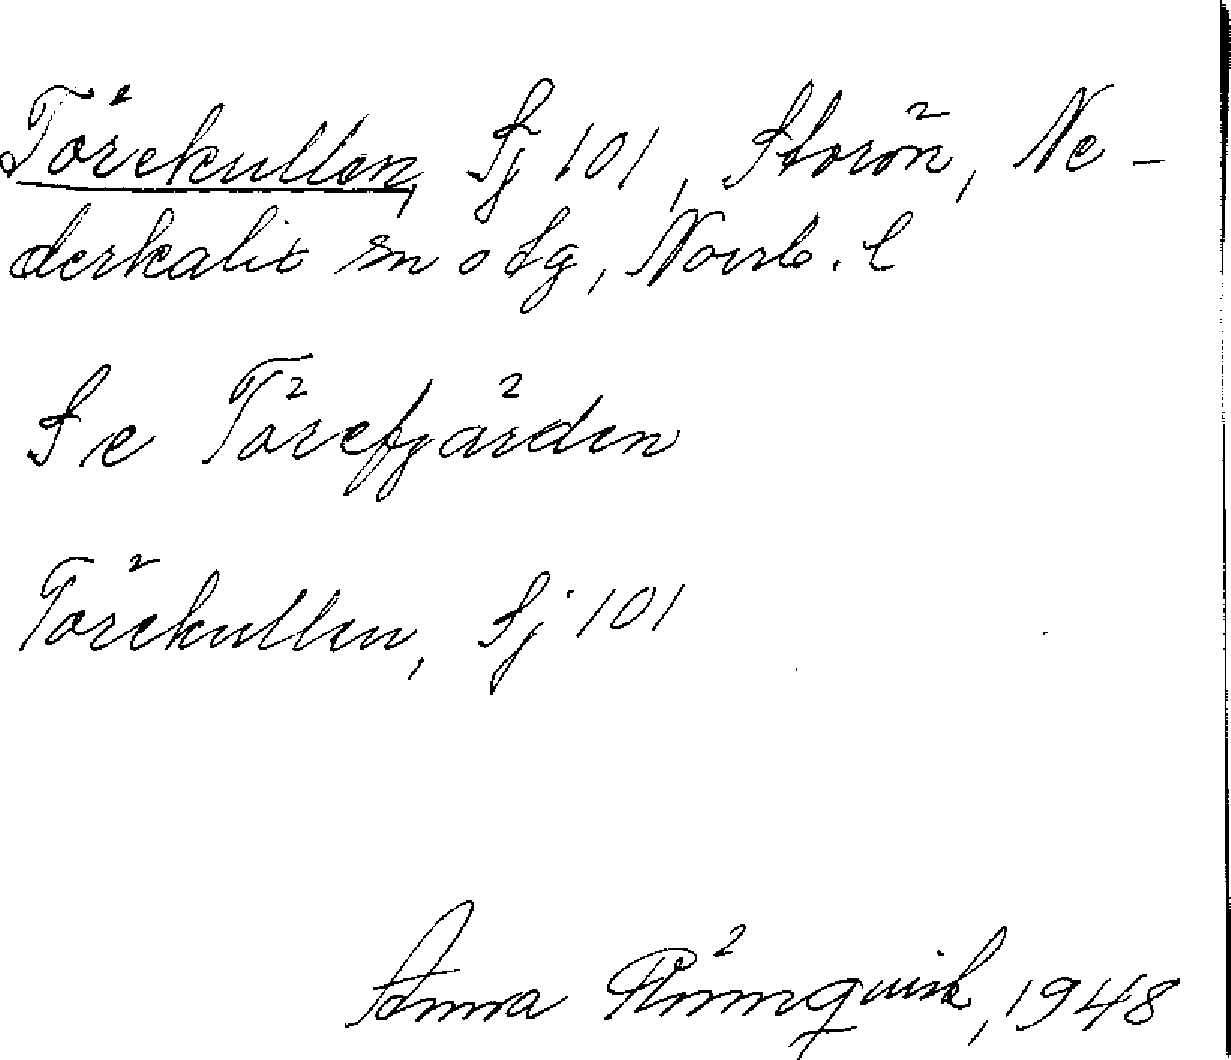 Törekullen, Sj 101, Storön, Ne-
derkalix sn o tg, Norrb. l
Se Törefjärden
Törekullen, Sj 101
Anna Rönnqvist, 1948